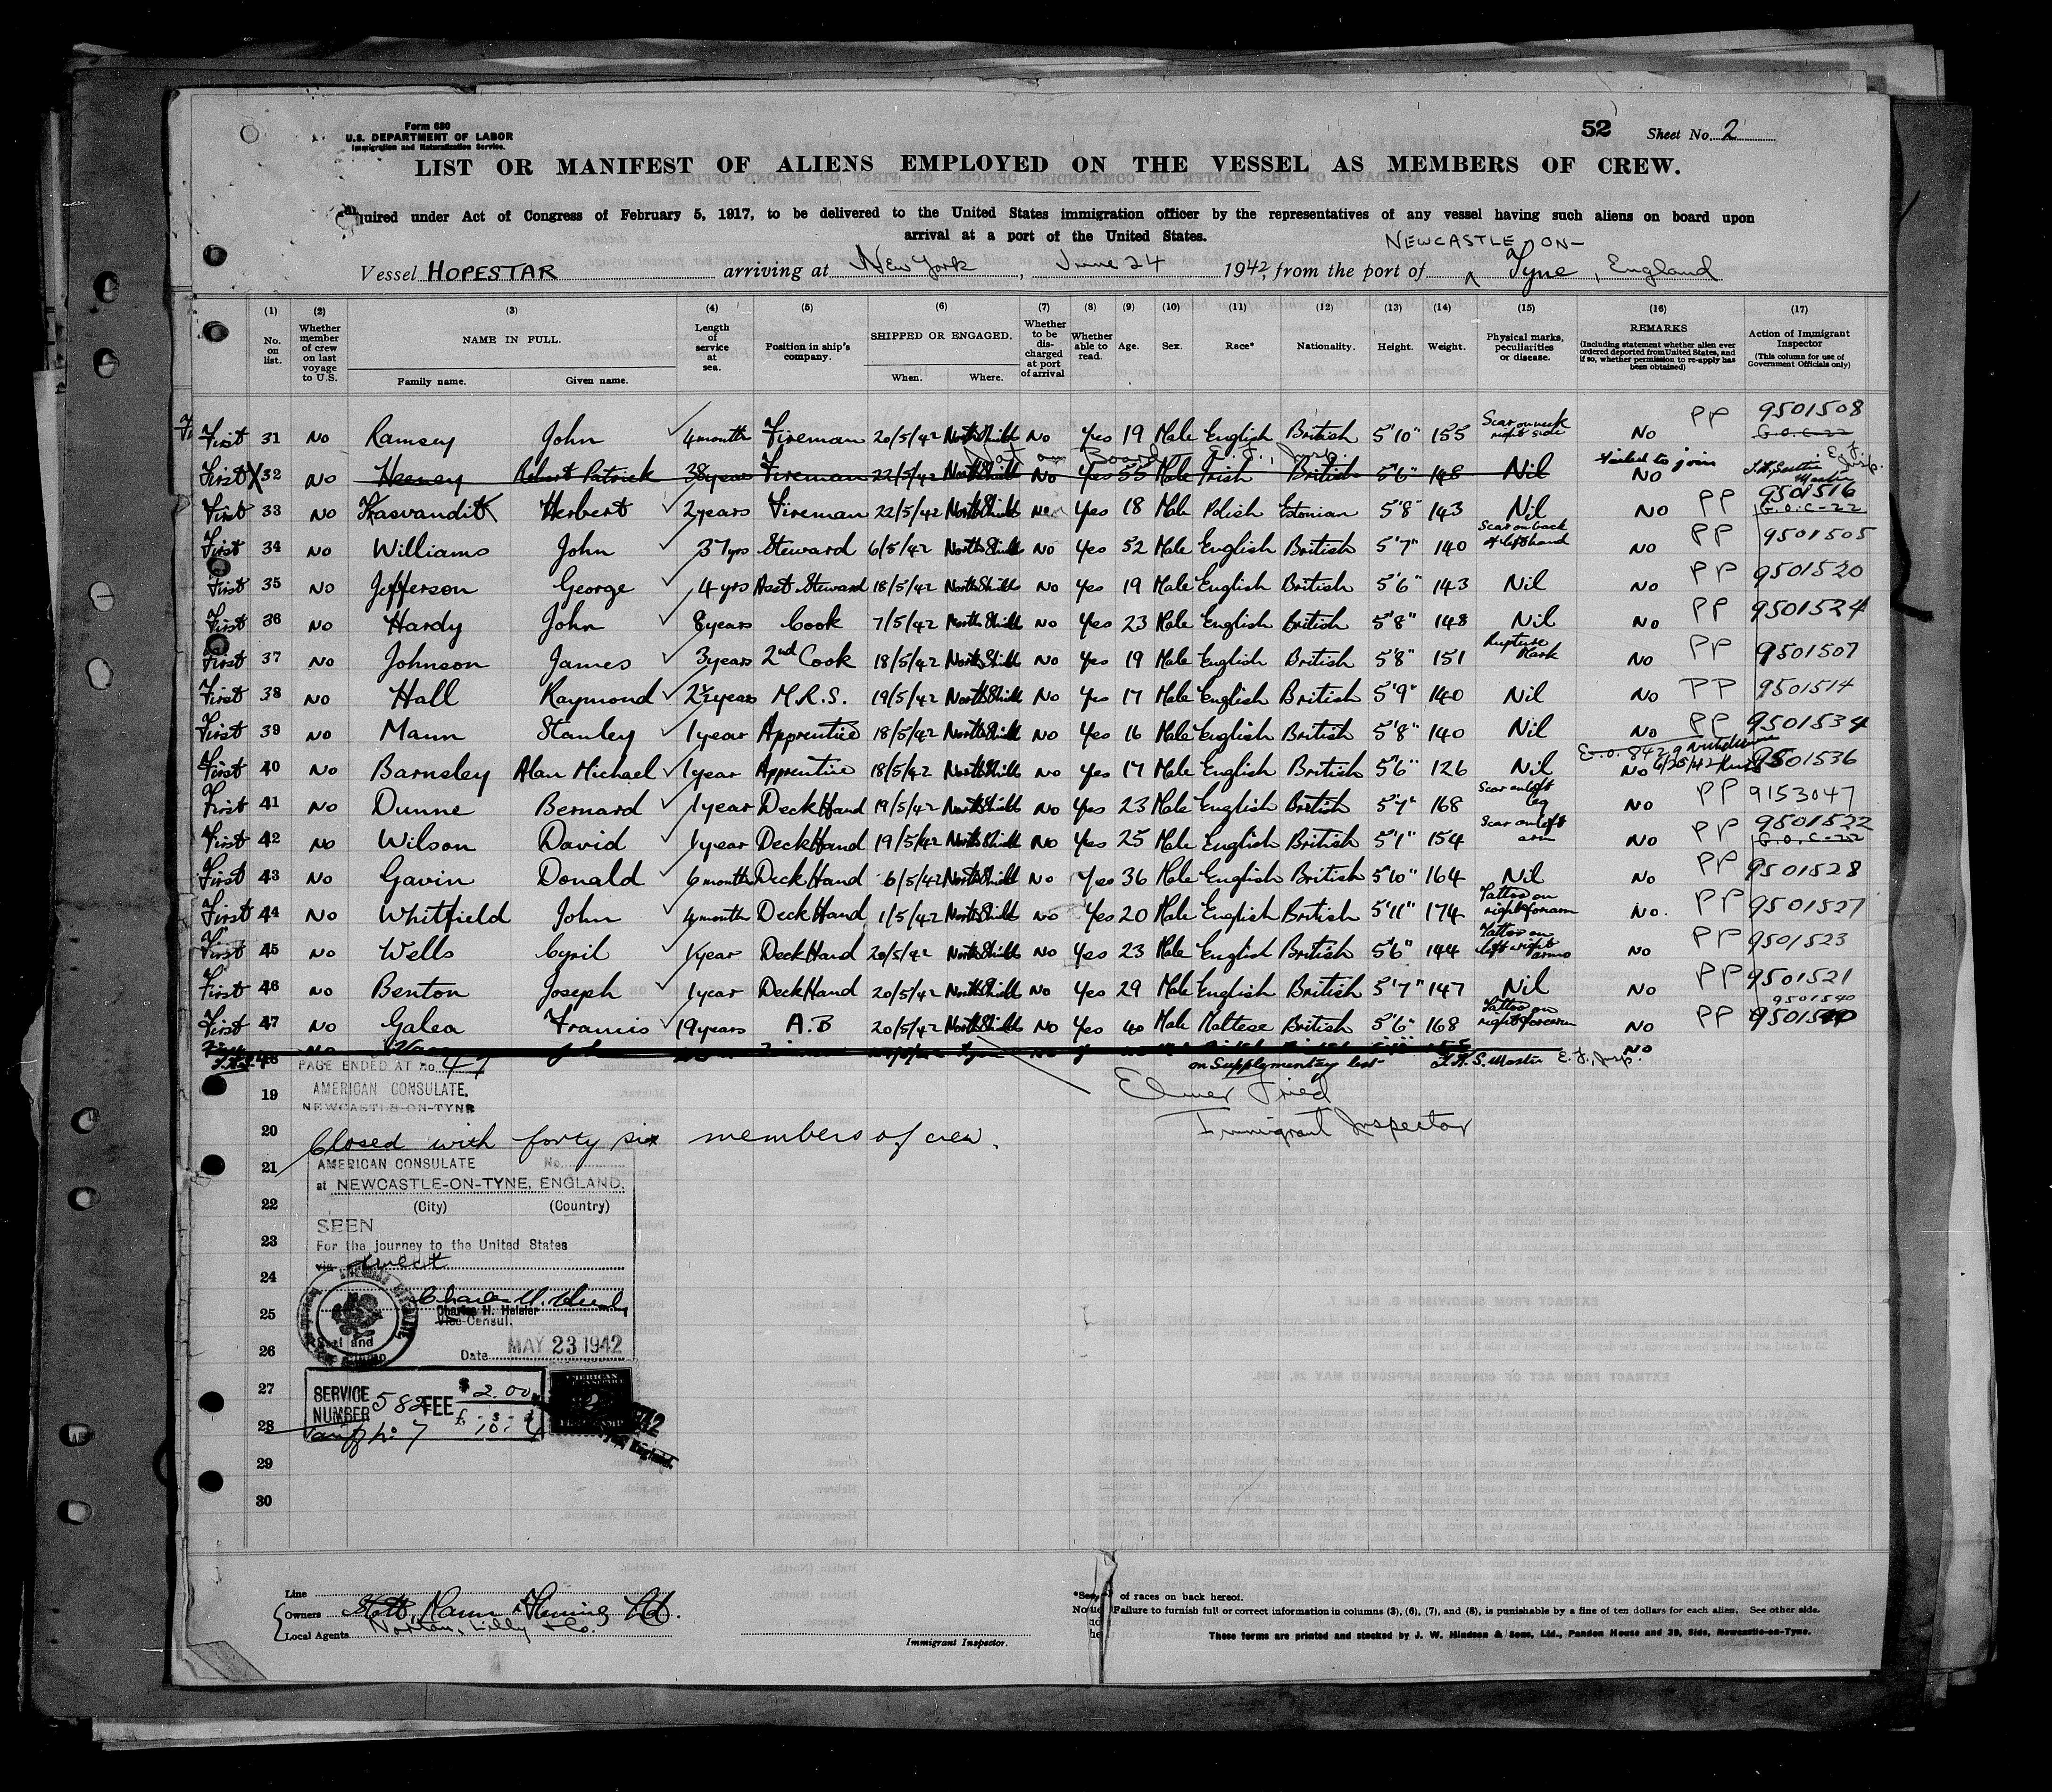 Form 630
U.S. DEPARTMENT OF LABOR
Immigration and Naturalization Service.
52 Sheet No. 2
LIST OR MANIFEST OF ALIENS EMPLOYED ON THE VESSEL AS MEMBERS OF CREW.
quired under Act of Congress of February 5, 1917, to be delivered to the United States immigration officer by the representatives of any vessel having such aliens on board upon
arrival at a port of the United States.
NEWCASTLE ON-
Vessel HOPESTAR arriving at New York, June 24 1942, from the port of Tyne, England
(1) (2) (3) (4) (5) (6) (7) (8) (9) (10) (11) (12) (13) (14) (15) (16) (17)
No. on list. Whether member of crew on last voyage to U.S. NAME IN FULL. Family name. Given name. Length of service at sea. Position in ship's company. SHIPPED OR ENGAGED. When. Where. Whether to be discharged at port of arrival Whether able to read. Age. Sex. Race* Nationality. Height. Weight. Physical marks, peculiarities or disease. REMARKS (Including statement whether alien ever ordered deported from United States, and if so, whether permission to re-apply has been obtained) Action of Immigrant Inspector (This column for use of Government Officials only)
First 31 No Ramsey John 4 month Fireman 20/5/42 North Shields No Yes 19 Male English British 5'10" 155 Scar on neck right side No PP 9501508 G.O.C-22
Not on Board E.F., Insp.
First X 32 No Heeney Robert Patrick 38 year Fireman 22/5/42 North Shields No Yes 55 Male Irish British 5'6" 148 Nil Failed to join No Master
First 33 No Krasvandit Herbert 2 years Fireman 22/5/42 North Shields No Yes 18 Male Polish Estonian 5'8" 143 Nil No PP 9501516 G.O.C-22
First 34 No Williams John 37 yrs Steward 6/5/42 North Shields No Yes 52 Male English British 5'7" 140 Scar on back of left hand No PP 9501505
First 35 No Jefferson George 4 yrs Asst Steward 18/5/42 North Shields No Yes 19 Male English British 5'6" 143 Nil No PP 9501520
First 36 No Hardy John 8 years Cook 7/5/42 North Shields No Yes 23 Male English British 5'8" 148 Nil No PP 9501524
First 37 No Johnson James 3 years 2nd Cook 18/5/42 North Shields No Yes 19 Male English British 5'8" 151 Rupture Mark No PP 9501507
First 38 No Hall Raymond 2½ years M.R.S. 19/5/42 North Shields No Yes 17 Male English British 5'9" 140 Nil No PP 9501514
First 39 No Mann Stanley 1 year Apprentice 18/5/42 North Shields No Yes 16 Male English British 5'8" 140 Nil No PP 9501534
First 40 No Barnsley Alan Michael 1 year Apprentice 18/5/42 North Shields No Yes 17 Male English British 5'6" 126 Nil E.O. 8429 No 6/25/42 9501536
First 41 No Dunne Bernard 1 year Deck Hand 19/5/42 North Shields No Yes 23 Male English British 5'7" 168 Scar on left leg No PP 9153047
First 42 No Wilson David 1 year Deck Hand 19/5/42 North Shields No Yes 25 Male English British 5'7" 154 Scar on left arm No PP 9501522 G.O.C-22
First 43 No Gavin Donald 6 month Deck Hand 6/5/42 North Shields No Yes 36 Male English British 5'10" 164 Nil No PP 9501528
First 44 No Whitfield John 4 month Deck Hand 1/5/42 North Shields No Yes 20 Male English British 5'11" 174 Tattoo on right forearm No. PP 9501527
First 45 No Wells Cyril 1 year Deck Hand 20/5/42 North Shields No Yes 23 Male English British 5'6" 144 Tattoo on left right arms No PP 9501523
First 46 No Benton Joseph 1 year Deck Hand 20/5/42 North Shields No Yes 29 Male English British 5'7" 147 Nil No PP 9501521
First 47 No Galea Francis 19 years A.B 20/5/42 North Shields No Yes 40 Male Maltese British 5'6" 168 Tattoo on right forearm No PP 9501540
48 on Supplementary list Master E.F., Insp. No
PAGE ENDED AT No. 47
AMERICAN CONSULATE.
NEWCASTLE-ON-TYNE
Elmer Fried
Immigrant Inspector
19
20
Closed with forty six members of crew.
21
AMERICAN CONSULATE No.
at NEWCASTLE-ON-TYNE, ENGLAND.
22 (City) (Country)
SEEN
23 For the journey to the United States
via direct
24
25 Charles H. Heisler
Vice Consul.
Seal and
26 Date MAY 23 1942
27 SERVICE NUMBER 582 FEE $2.00
28 Tariff No 7
29
30
Line
Owners Stott, Mann & Fleming Ltd.
Local Agents Norton, Lilly & Co.
Immigrant Inspector.
*See of races on back hereof.
Failure to furnish full or correct information in columns (3), (6), (7), and (8), is punishable by a fine of ten dollars for each alien. See other side.
These forms are printed and stocked by J. W. Hindson & Sons, Ltd., Pandon House and 39, Side, Newcastle-on-Tyne.